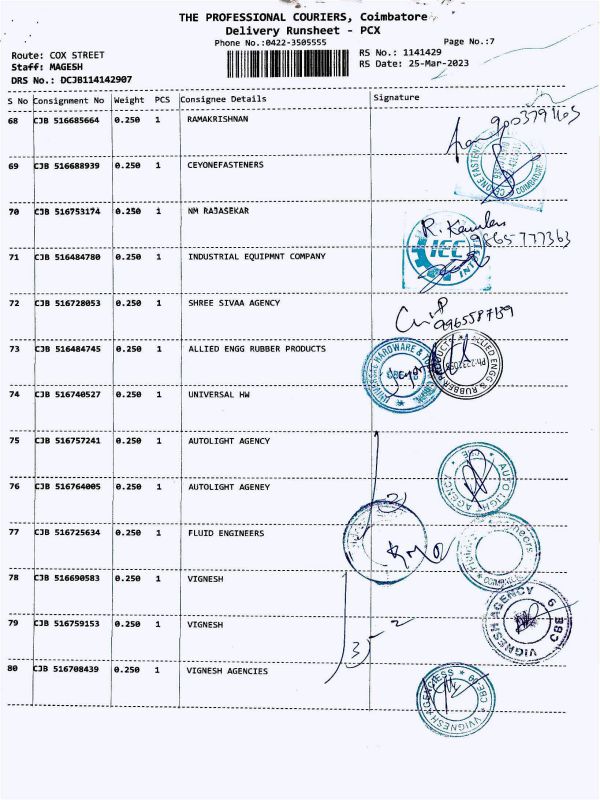 THE PROFESSIONAL COURIERS, Coimbatore
Delivery Runsheet - PCX
Phone No.:0422-3505555 Page No.:7
Route: COX STREET RS No.: 1141429
Staff: MAGESH RS Date: 25-Mar-2023
DRS No.: DCJB114142907
S No Consignment No Weight PCS Consignee Details Signature
68 CJB 516685664 0.250 1 RAMAKRISHNAN
69 CJB 516688939 0.250 1 CEYONEFASTENERS
COIMBATORE
70 CJB 516753174 0.250 1 NM RAJASEKAR
9865-777363
71 CJB 516484780 0.250 1 INDUSTRIAL EQUIPMNT COMPANY
IEC
72 CJB 516728053 0.250 1 SHREE SIVAA AGENCY
73 CJB 516484745 0.250 1 ALLIED ENGG RUBBER PRODUCTS
ALLIED ENGG & RUBBER PRODUCTS
74 CJB 516740527 0.250 1 UNIVERSAL HW
75 CJB 516757241 0.250 1 AUTOLIGHT AGENCY
AUTO LIGHT AGENCY
76 CJB 516764005 0.250 1 AUTOLIGHT AGENEY
77 CJB 516725634 0.250 1 FLUID ENGINEERS
78 CJB 516690583 0.250 1 VIGNESH
VIGNESH AGENCY
79 CJB 516759153 0.250 1 VIGNESH
80 CJB 516708439 0.250 1 VIGNESH AGENCIES